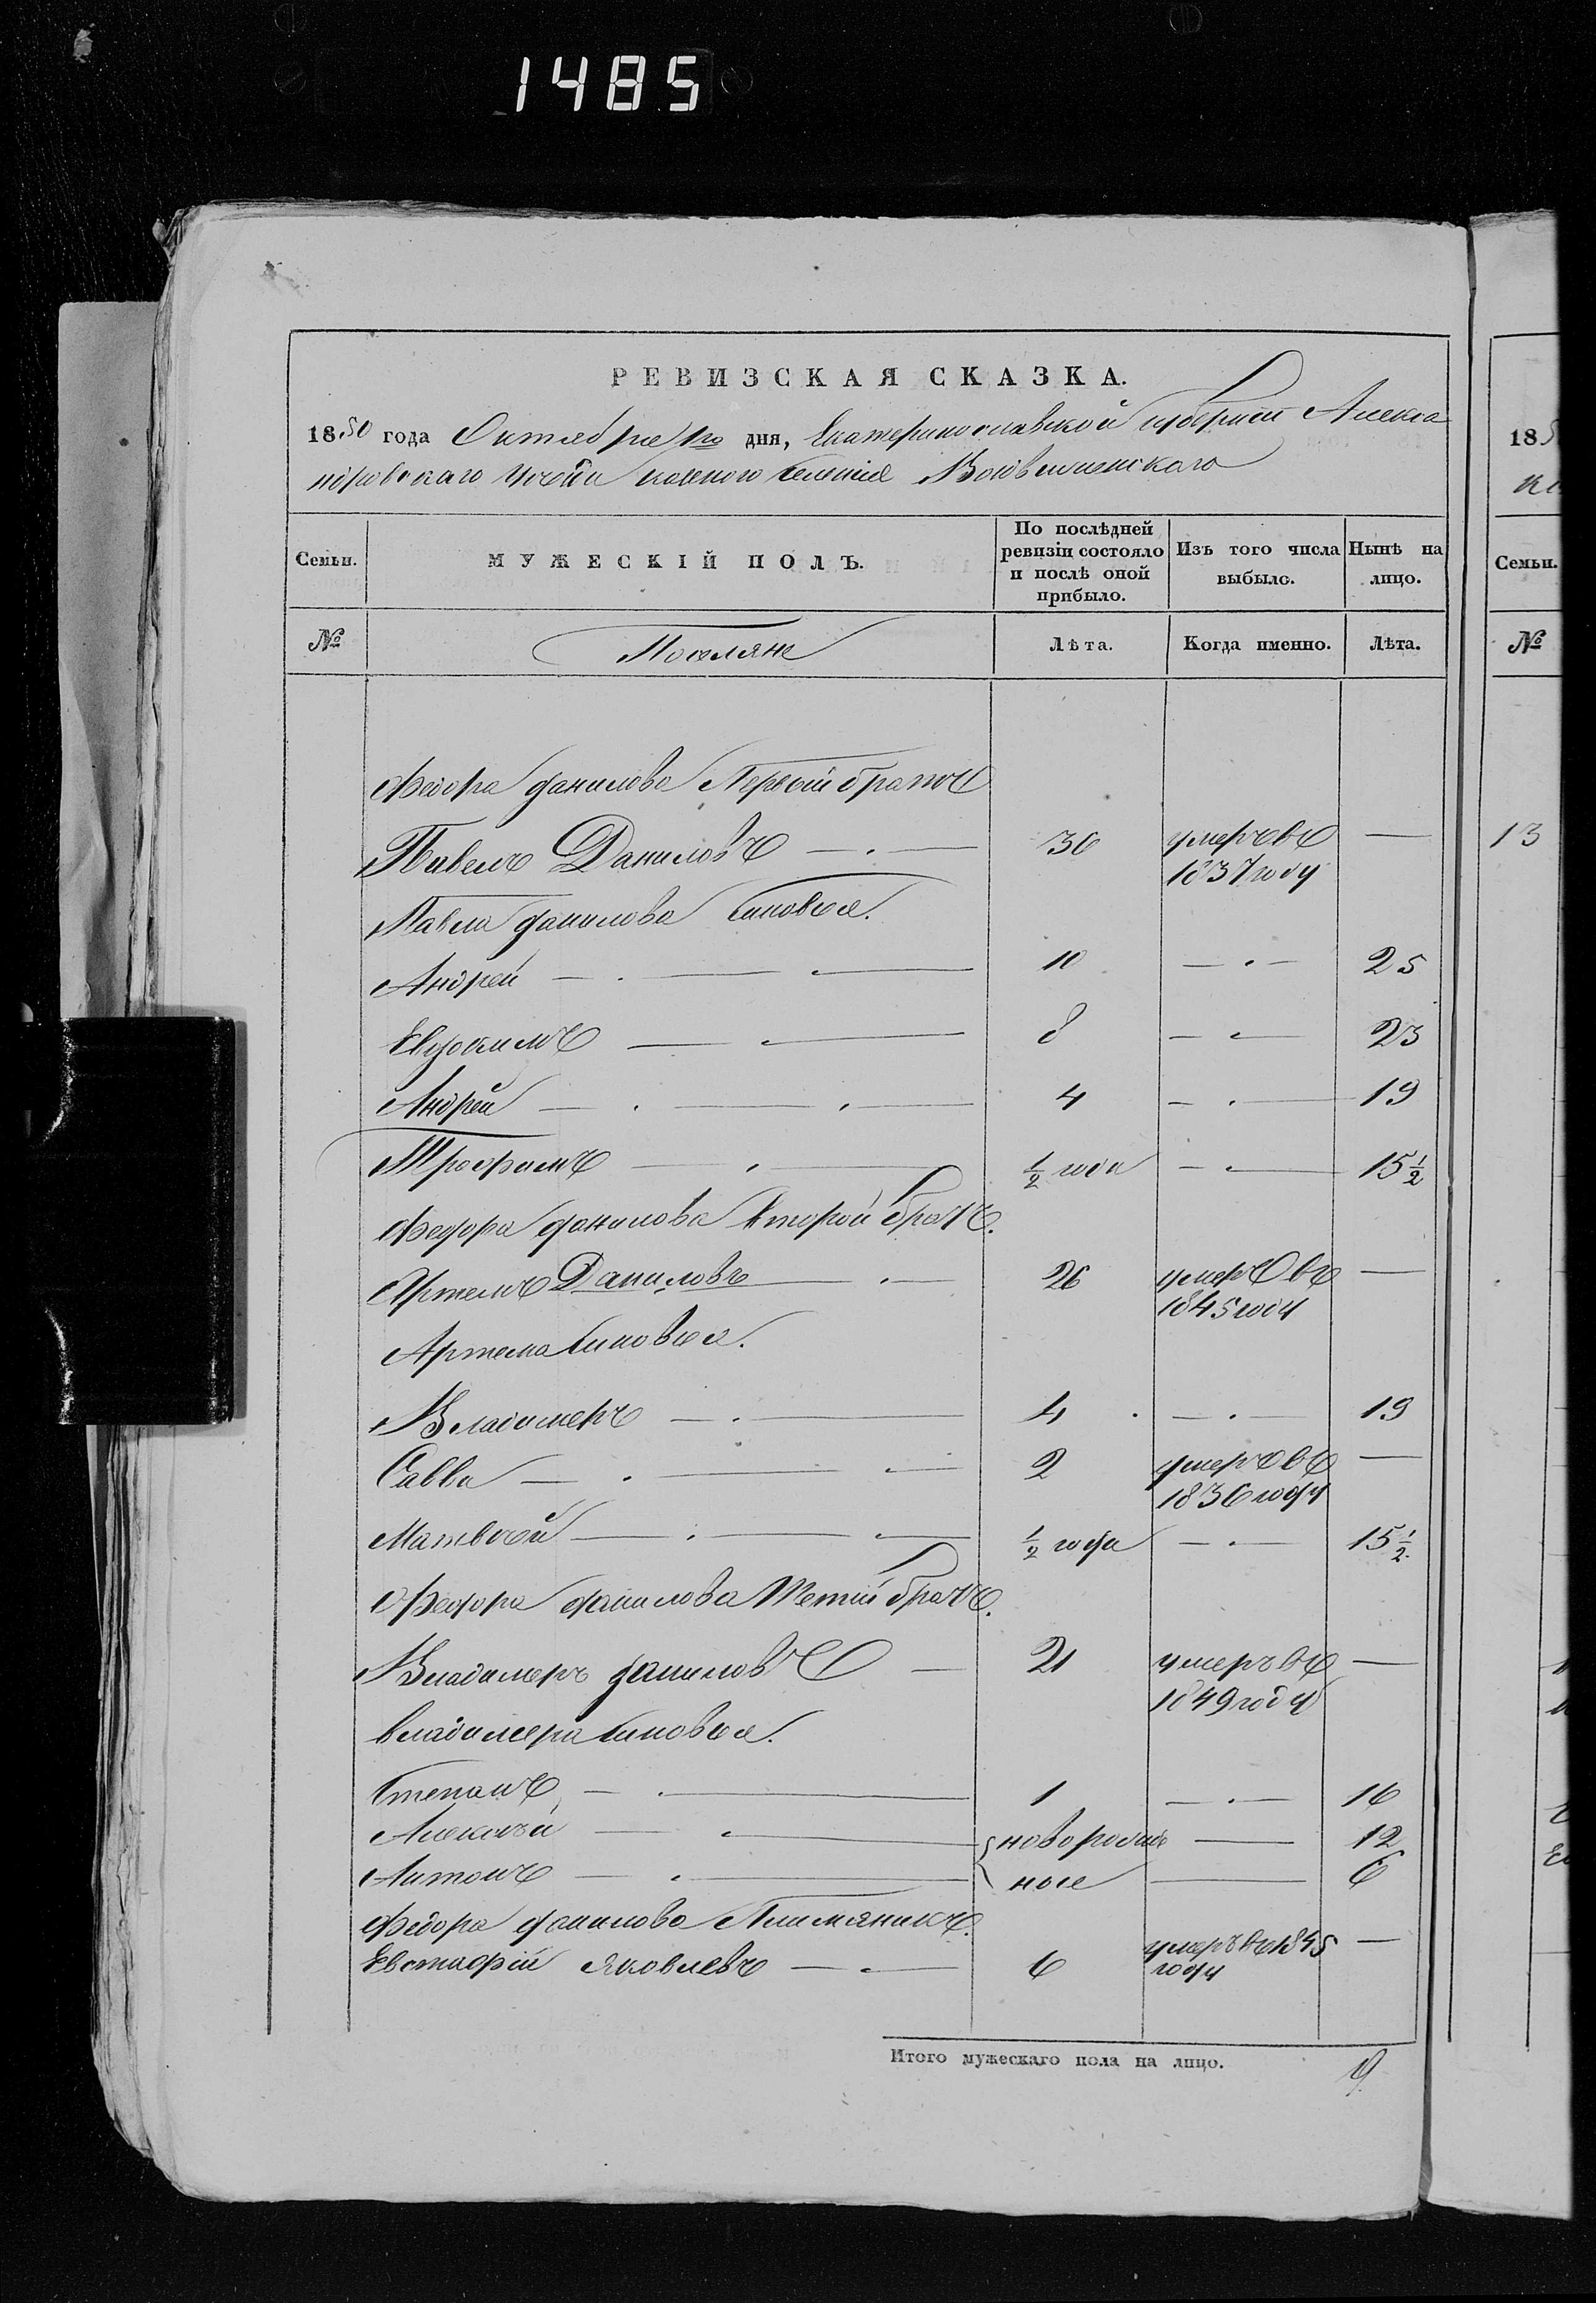 1485
РЕВИЗСКАЯ СКАЗКА.
1850 года Октября 1го дня, Екатеринославской губернии Алекса
ндровскаго уезда казеного селения
Семьи.
МУЖЕСКІЙ ПОЛЪ.
По послѣдней ревизіи состояло и послѣ оной прибыло.
Изъ того числа выбыло.
Нынѣ на лицо.
№
Поселяне
Лѣта.
Когда именно.
Лѣта.
Федора данилова Первый братъ
Павелъ Даниловъ — 36 умеръ въ —
1837 году
Павла данилова сыновья.
Андрей — 10 — 25
Евдокимъ — 8 — 23
Андрей — 4 — 19
Трофимъ — ½ года — 15½
Федора данилова второй братъ.
Артемъ Даниловъ — 26 умеръ въ —
1845 году
Артема сыновья.
Владимеръ — 4 — 19
Савва — 2 умеръ въ —
1836 году
Матвѣй — ½ года — 15½
Федора данилова Третий братъ.
Владимеръ даниловъ — 21 умеръ въ —
1849 году
владимера сыновья.
Степанъ — 1 — 16
Алексѣй — новорожде — 12
Антонъ — ные — 6
Федора данилова Племяникъ.
Евстафій Яковлевъ — 6 умеръ въ 1845 —
году
Итого мужескаго пола на лицо. 9.
185
Семьи.
№
13